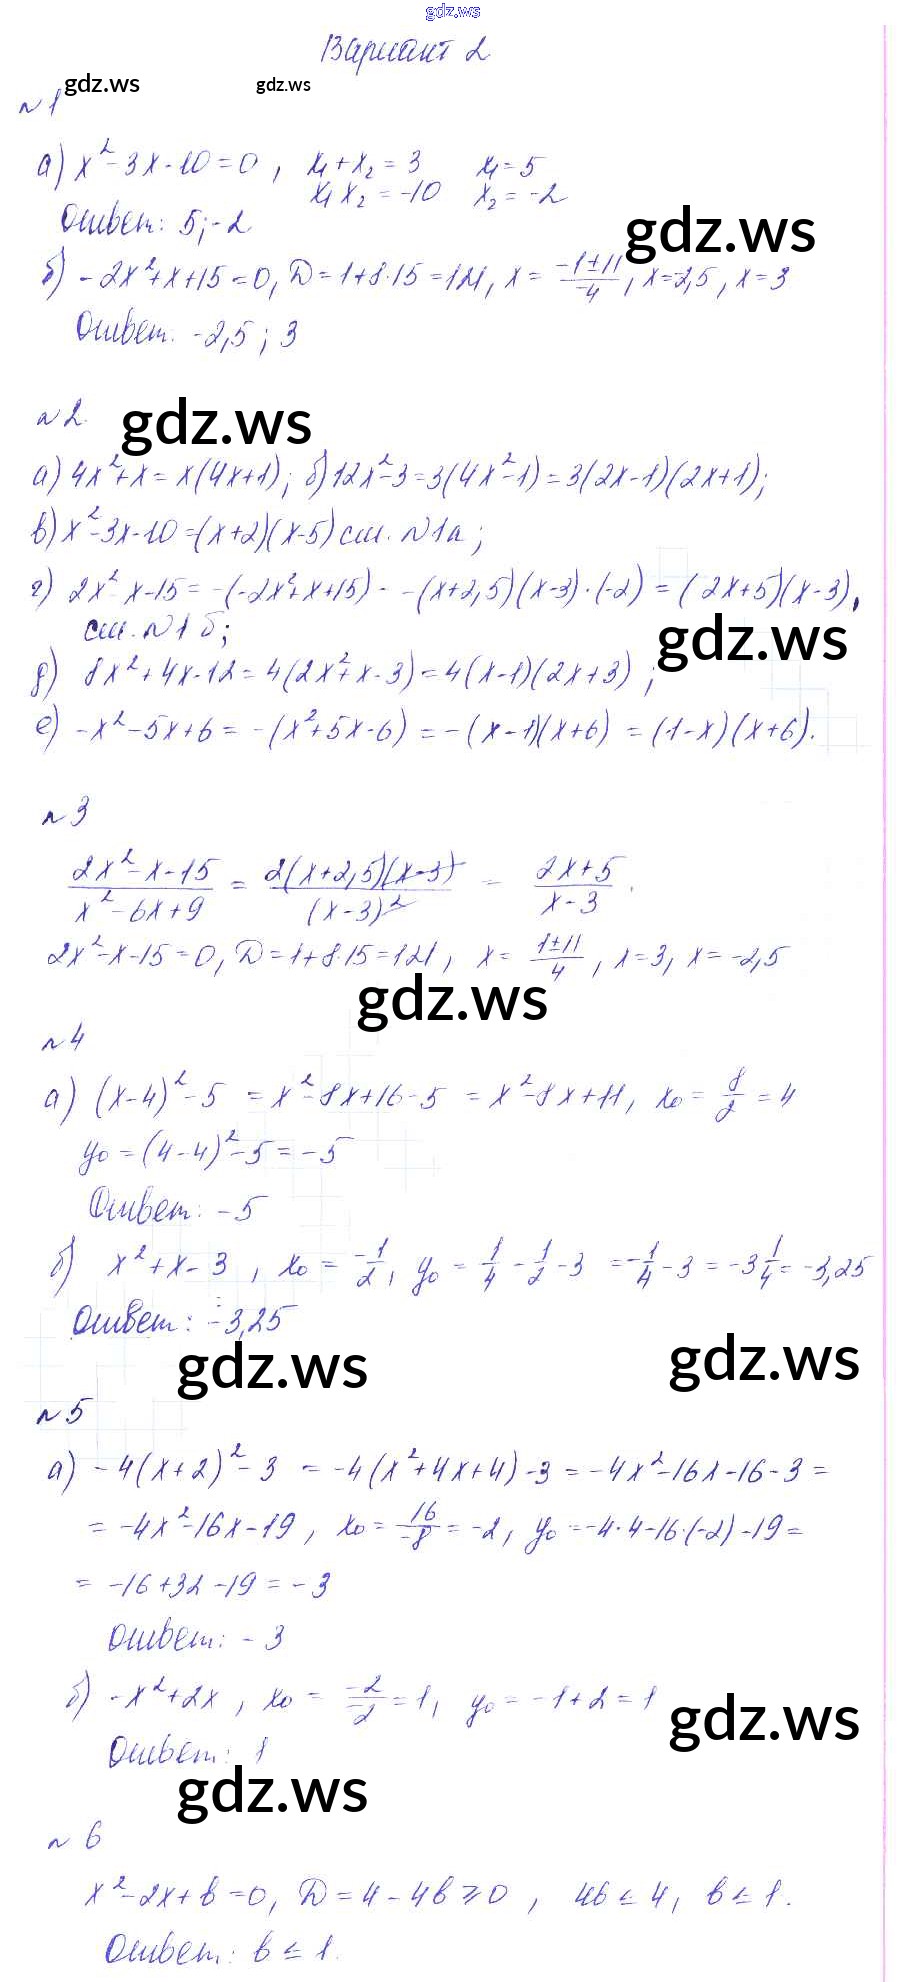 gdz.ws
Вариант 2
gdz.ws gdz.ws
№1
а) x² - 3x - 10 = 0, x₁ + x₂ = 3 x₁ = 5
x₁ x₂ = -10 x₂ = -2
Ответ: 5; -2
gdz.ws
б) -2x² + x + 15 = 0, D = 1 + 8·15 = 121, x = (-1±11)/(-4), x = -2,5, x = 3
Ответ: -2,5; 3
№2.
gdz.ws
а) 4x² + x = x(4x+1); б) 12x² - 3 = 3(4x² - 1) = 3(2x-1)(2x+1);
в) x² - 3x - 10 = (x+2)(x-5) см. №1а;
г) 2x² - x - 15 = -(-2x² + x + 15) - -(x+2,5)(x-3)·(-2) = (2x+5)(x-3),
см. №1б;
gdz.ws
д) 8x² + 4x - 12 = 4(2x² + x - 3) = 4(x-1)(2x+3);
е) -x² - 5x + 6 = -(x² + 5x - 6) = -(x-1)(x+6) = (1-x)(x+6).
№3
(2x² - x - 15)/(x² - 6x + 9) = 2(x+2,5)(x-3)/(x-3)² = (2x+5)/(x-3).
2x² - x - 15 = 0, D = 1 + 8·15 = 121, x = (1±11)/4, x = 3, x = -2,5
gdz.ws
№4
а) (x-4)² - 5 = x² - 8x + 16 - 5 = x² - 8x + 11, x₀ = 8/2 = 4
y₀ = (4-4)² - 5 = -5
Ответ: -5
б) x² + x - 3, x₀ = -1/2, y₀ = 1/4 - 1/2 - 3 = -1/4 - 3 = -3 1/4 = -3,25
Ответ: -3,25
gdz.ws gdz.ws
№5
а) -4(x+2)² - 3 = -4(x² + 4x + 4) - 3 = -4x² - 16x - 16 - 3 =
= -4x² - 16x - 19, x₀ = 16/-8 = -2, y₀ = -4·4 - 16·(-2) - 19 =
= -16 + 32 - 19 = -3
Ответ: -3
б) -x² + 2x, x₀ = -2/-2 = 1, y₀ = -1 + 2 = 1
gdz.ws
Ответ: 1
gdz.ws
№6
x² - 2x + b = 0, D = 4 - 4b ⩾ 0, 4b ≤ 4, b ≤ 1.
Ответ: b ≤ 1.